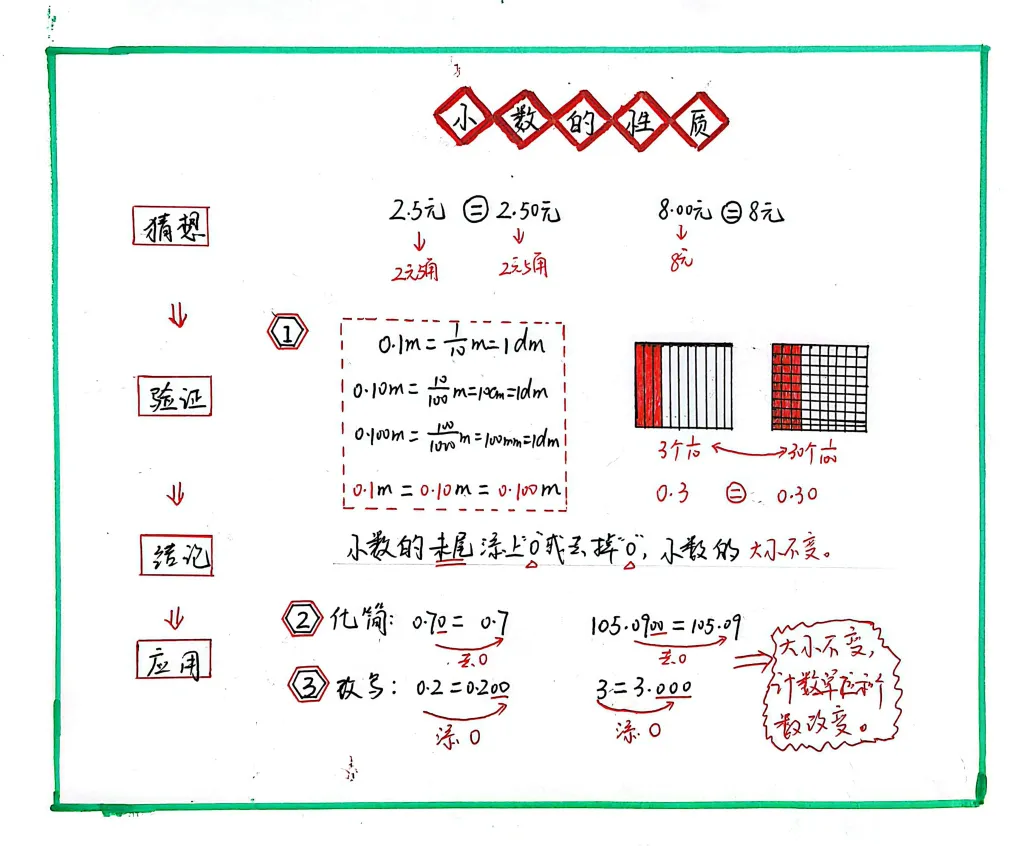 小数的性质
猜想
2.5元 = 2.50元
8.00元 = 8元
2元5角
2元5角
8元
1
0.1m = 1/10 m = 1dm
0.10m = 10/100 m = 10cm = 1dm
0.100m = 100/1000 m = 100mm = 1dm
0.1m = 0.10m = 0.100m
验证
3个1/10
30个1/100
0.3 = 0.30
结论
小数的末尾添上"0"或去掉"0",小数的大小不变。
应用
2 化简: 0.70 = 0.7
105.0900 = 105.09
去0
去0
3 改写: 0.2 = 0.200
3 = 3.000
添0
添0
大小不变,
计数单位和个
数改变。